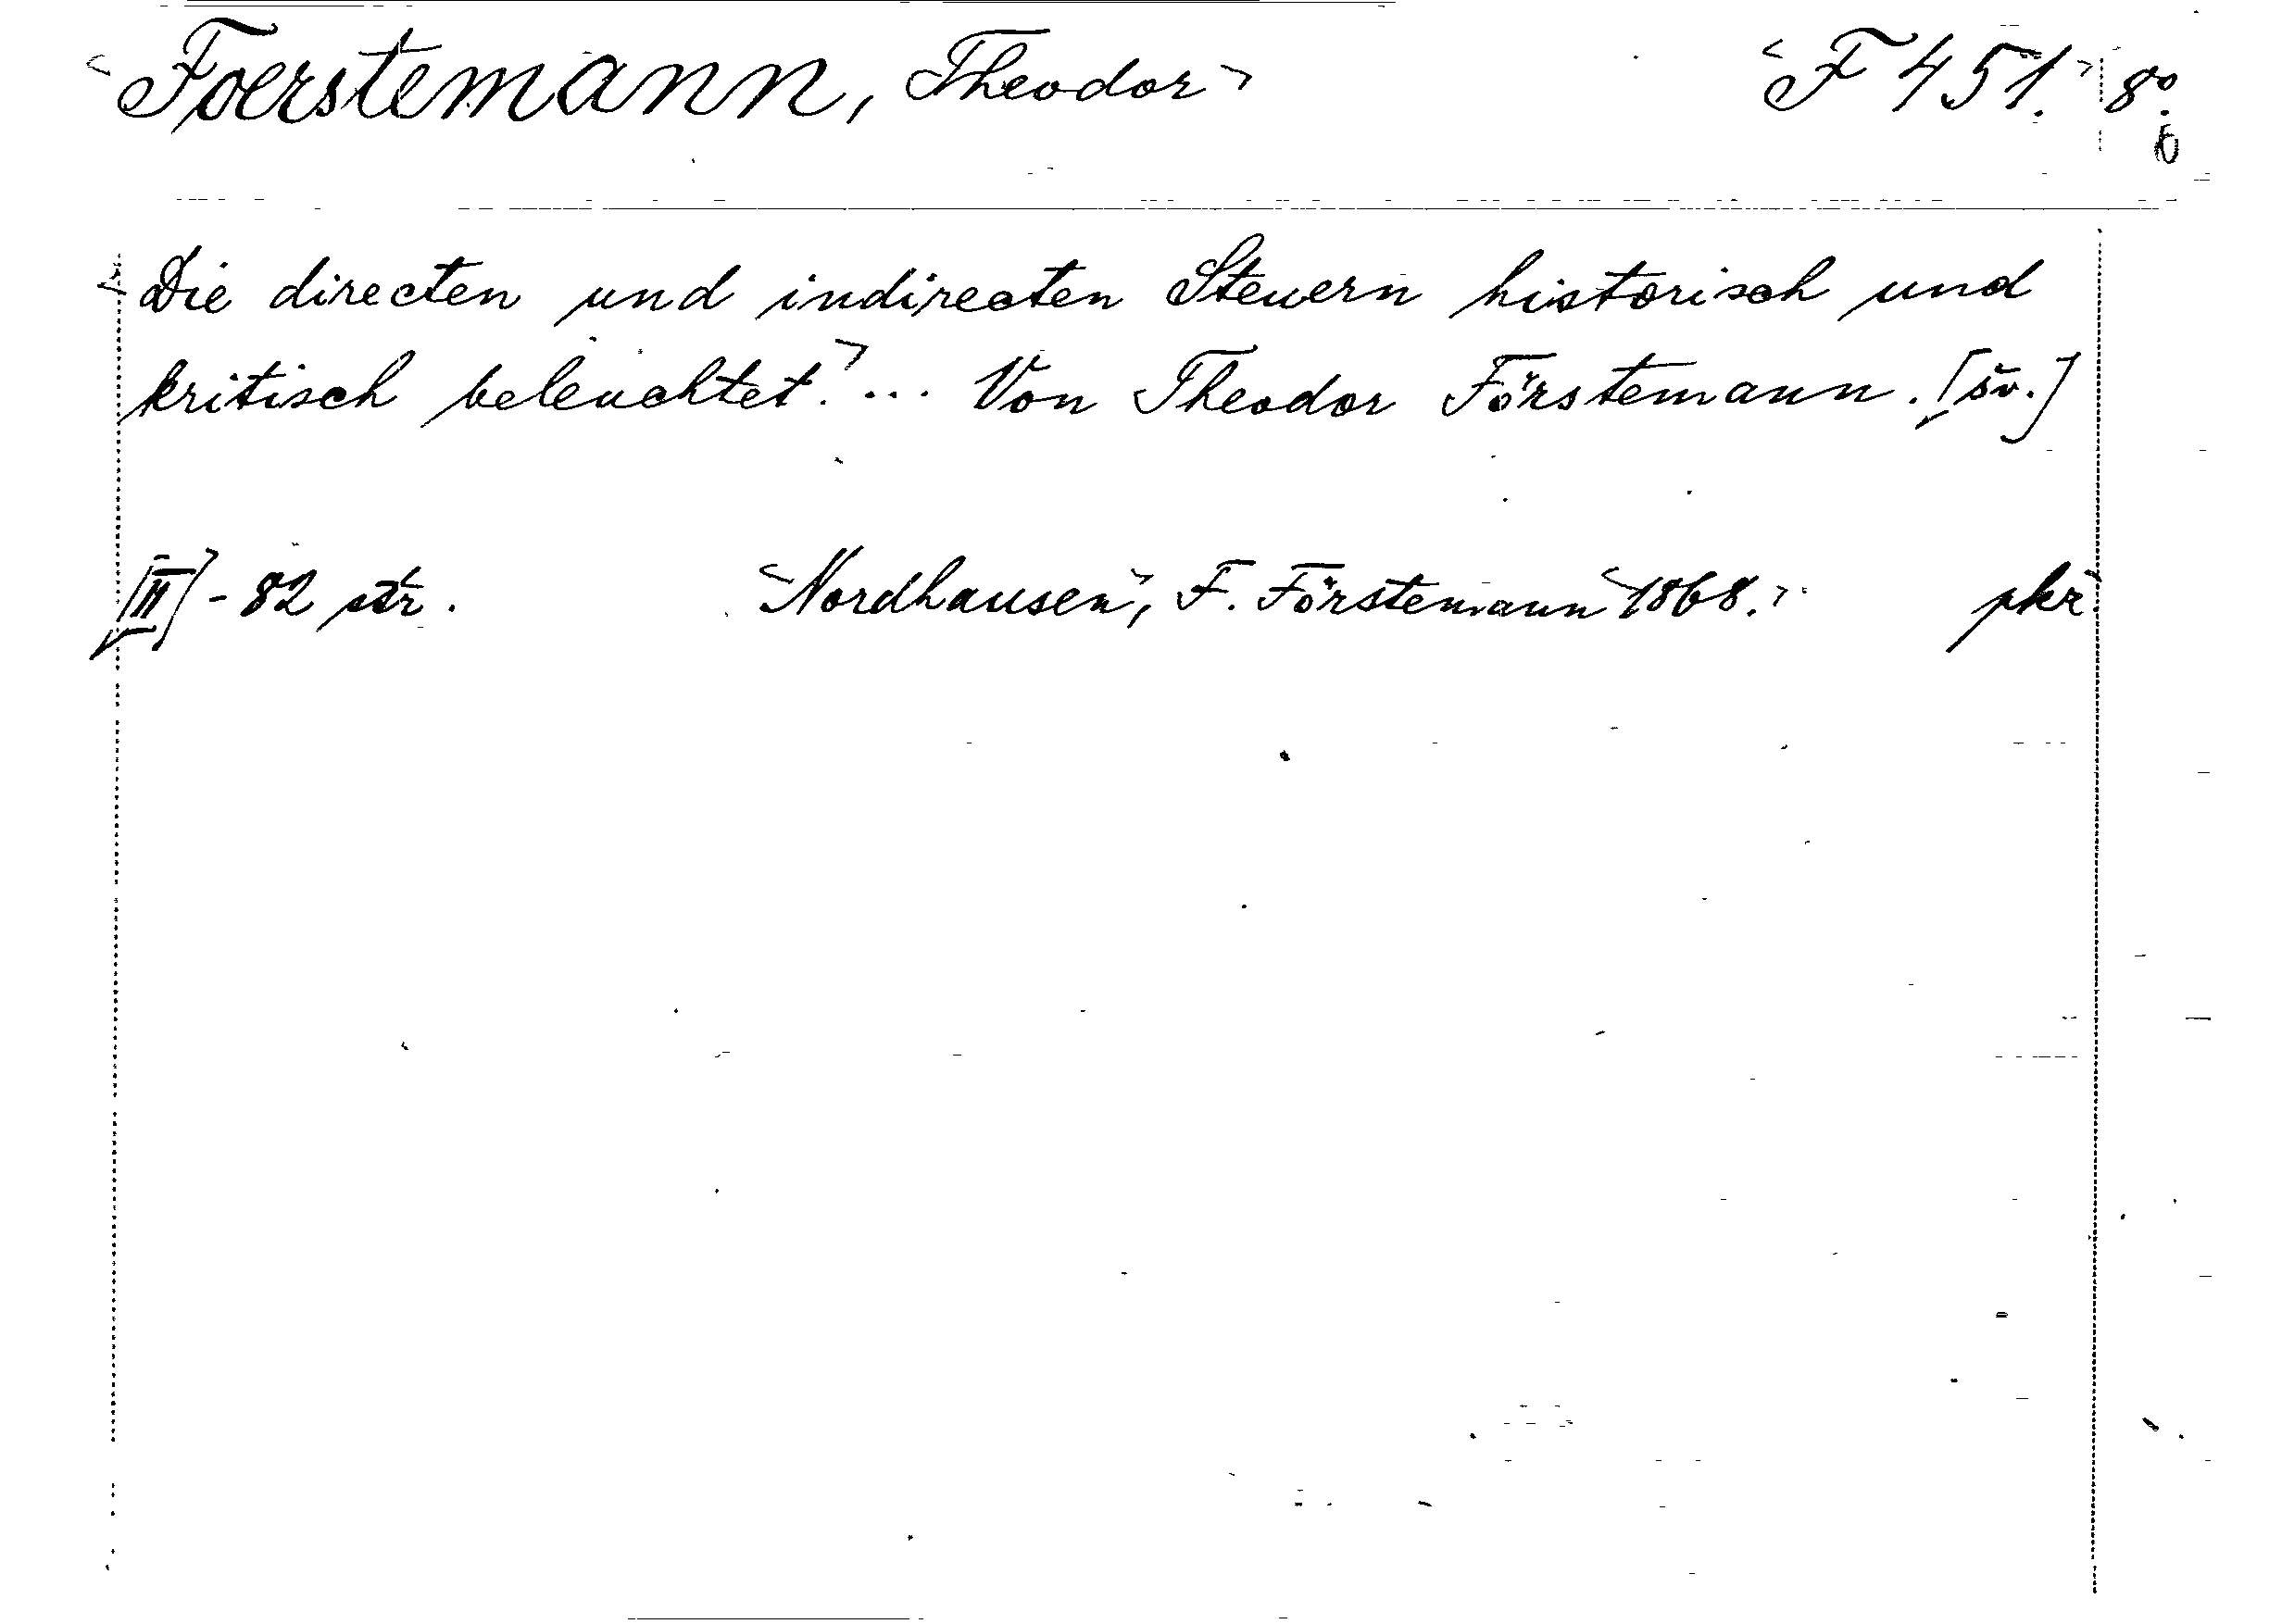 Foerstemann, Theodor F 451. 8°.
Die directen und indirecten Steuern historisch und
kritisch beleuchtet. ... Von Theodor Förstemann. [šv.]
[II] - 82 str. Nordhausen, F. Förstemann 1868. pkr